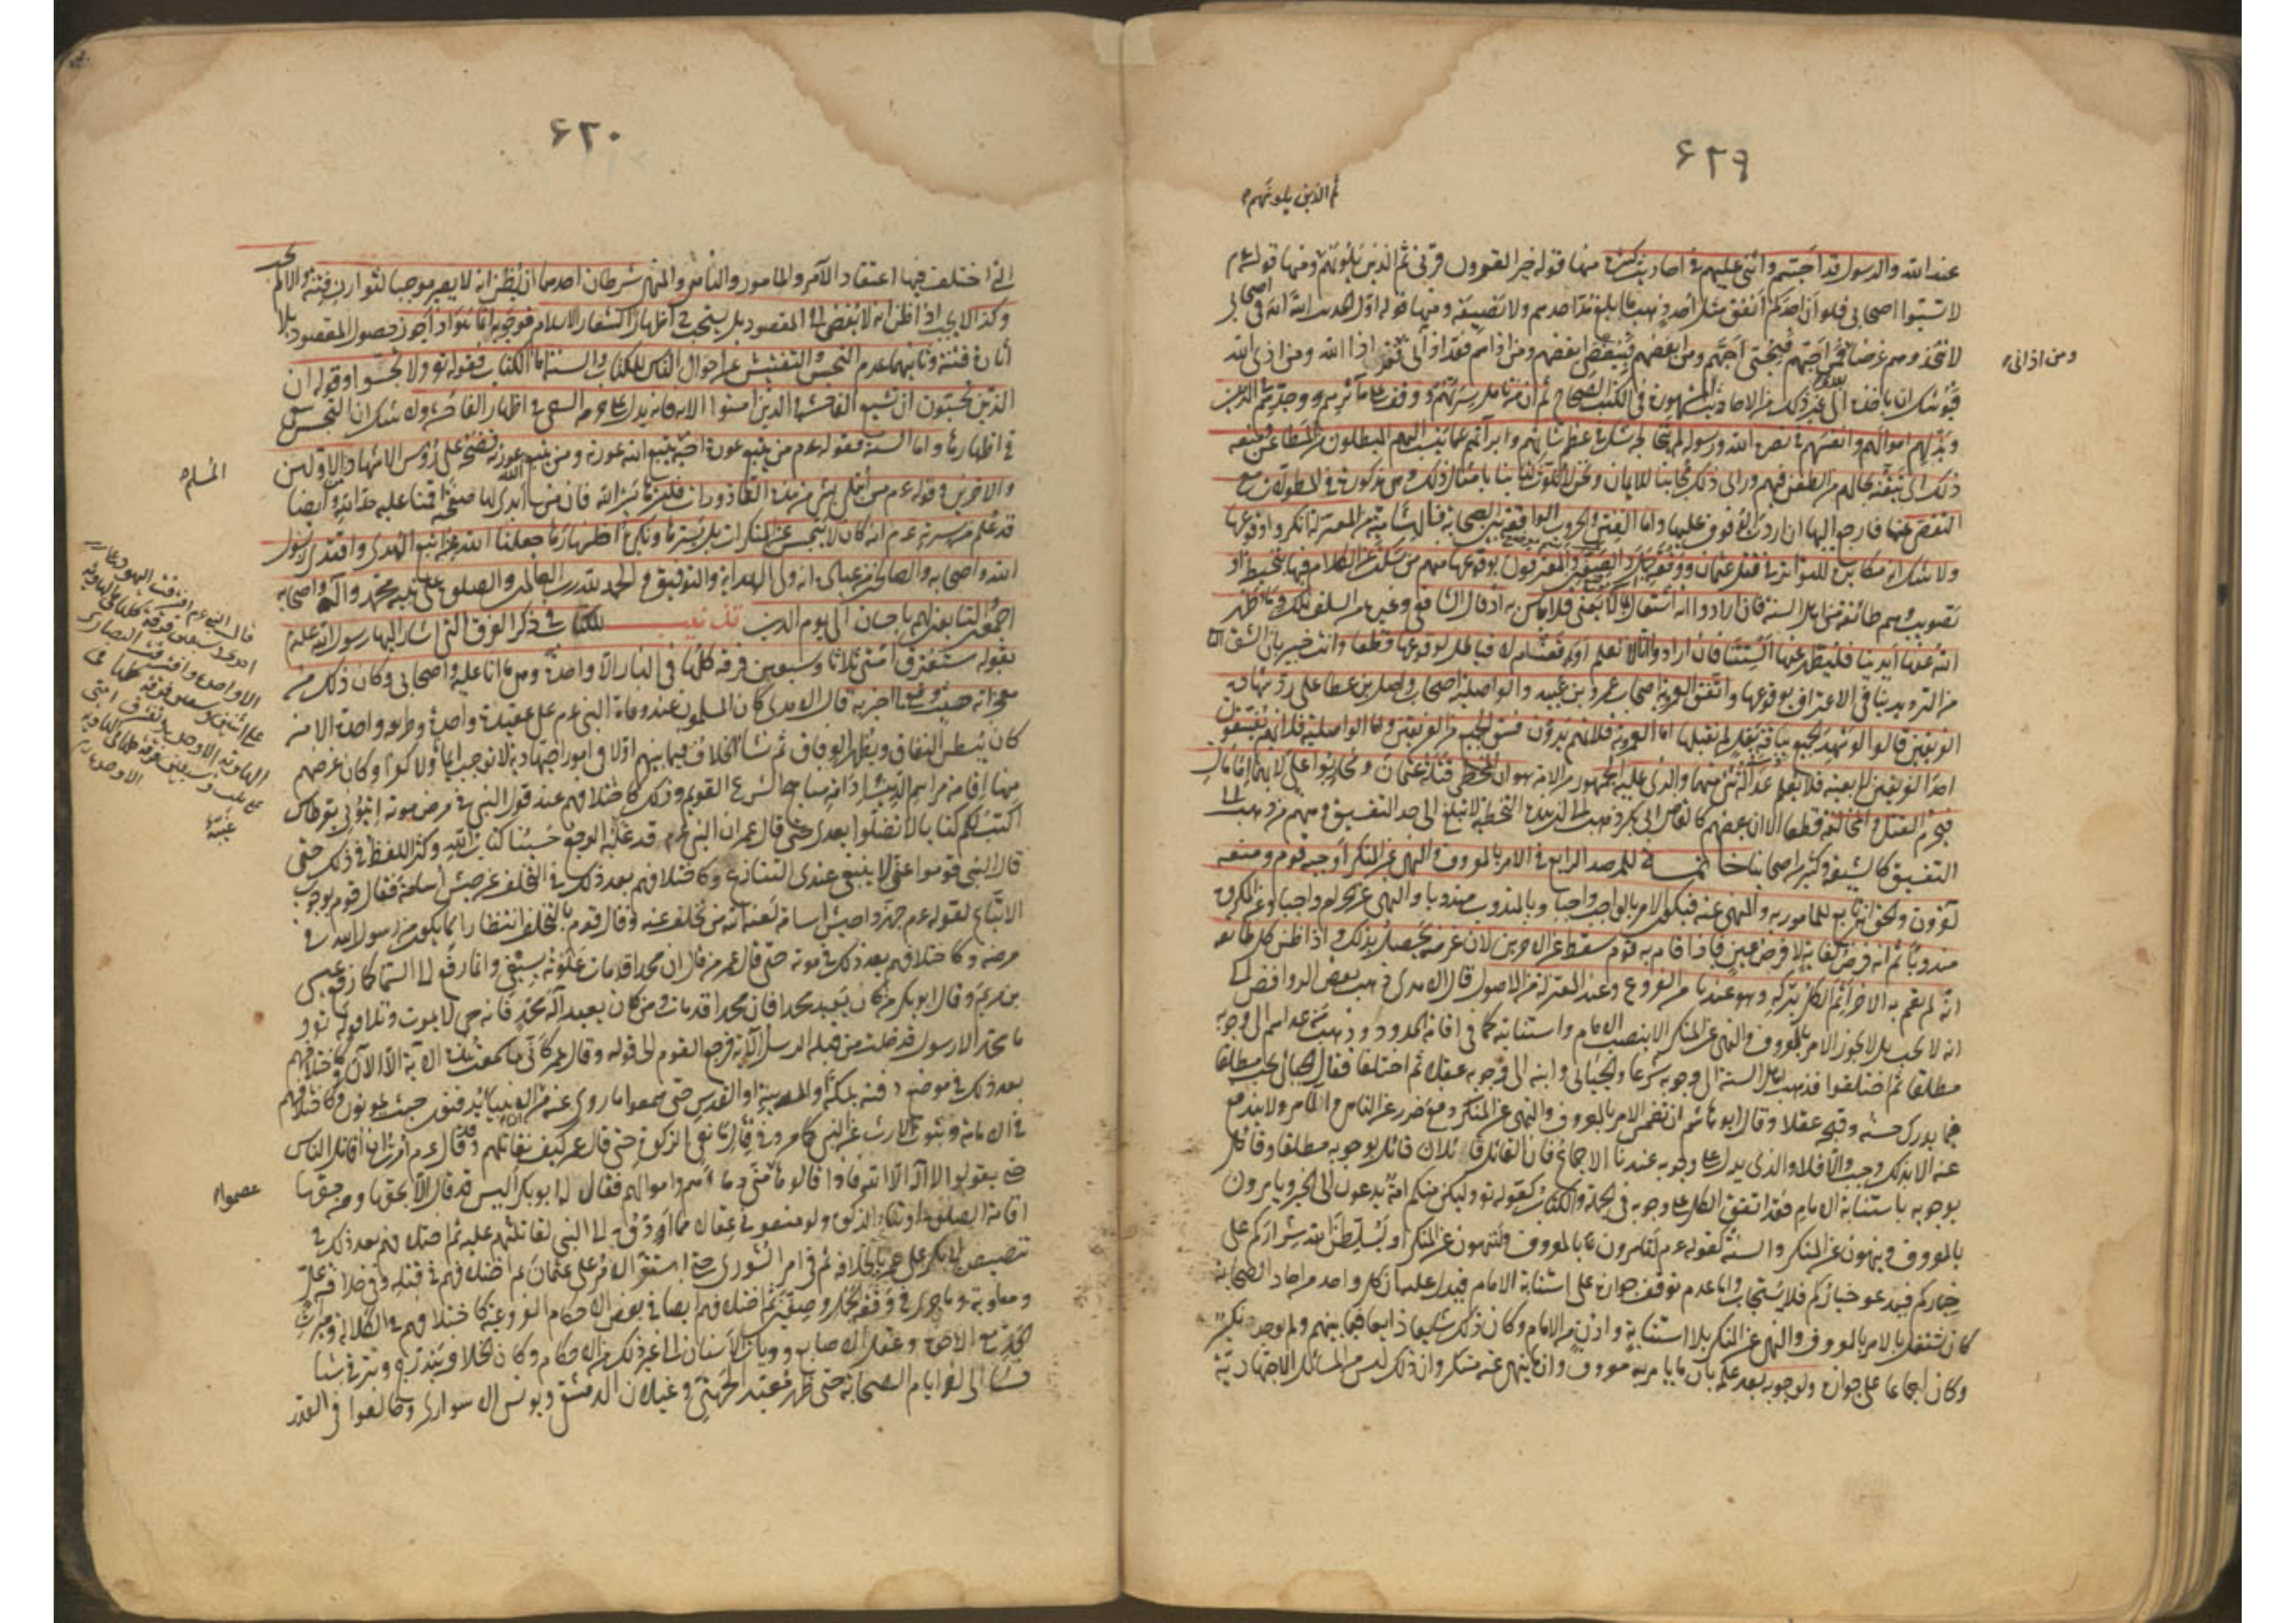 ۶۲۹
ثم الذين يلونهم
عند الله والرسول قد احبهم واثنى عليهم في احاديث كثيرة منها قوله خير القرون قرني ثم الذين يلونهم ومنها قوله عم
لا تسبوا اصحابي فلو ان احدكم انفق مثل احد ذهبا ما بلغ مد احدهم ولا نصيفه ومنها قوله الله الله في اصحابي
لا تتخذوهم غرضا فمن احبهم فبحبي احبهم ومن ابغضهم فببغضي ابغضهم ومن اذاهم فقد اذاني فقد اذا الله ومن اذى الله
ومن اذانى
فيوشك ان ياخذه الى غير ذلك من الاحاديث المشهورة في الكتب الصحاح ثم ان من تامل سيرتهم ووقف على مآثرهم وجدهم في الدين
وبذلهم اموالهم وانفسهم في نصرة الله ورسوله لم يتخالجه شك في عظم شانهم وابرائهم عما ينسب اليهم المبطلون من المطاعن ومنعه
ذلك اى تيقنه بحالهم من الطعن فيهم وراى ذلك مجانبا للايمان ونحن لا نلوث كتابنا بامثال ذلك وهى مذكورة في المطولات مع
التفصى عنها فارجع اليها ان اردت الوقوف عليها واما الفتن والحروب الواقعة بين الصحابة فالهشامية من المعتزلة انكروا وقوعها
ولا شك انه مكابرة للتواتر في قتل عثمان ووقعة الجمل وصفين والمعترفون بوقوعها منهم من سكت عن الكلام فيها بتخطية او
تصويب وهم طائفة من اهل السنة فان ارادوا انه اشتغال بما لا يعنى فلا باس به اذ قال الشافعى وغيره من السلف تلك دماء طهر
الله عنها ايدينا فلنطهر عنها السنتنا فان ارادوا انا لا نعلم اوقعت ام لا فباطل لوقوعها قطعا وانت خبير بان الشق الثا
من الترديد ينافى الاعتراف بوقوعها واتفق العمرية اصحاب عمرو بن عبيد والواصلية اصحاب واصل بن عطا على رد شهادة
الفريقين قالوا لو شهد الجميع بباقة بقل لم نقبلها اما العمرية فلانهم يرون فسق الجميع من الفريقين واما الواصلية فلانهم يفسقون
احد الفريقين لا بعينه فلا يعلم عدالة شئ منهما والذى عليه الجمهور من الامة هو ان المخطئ قتلة عثمان ومحاربوا على لانهما امامان
فيحرم القتل والمخالفة قطعا الا ان بعضهم كالقاضى ابى بكر ذهب الى ان هذه التخطية لا تبلغ الى حد التفسيق ومنهم من ذهب الى
التفسيق كالشيعة وكثير من اصحابنا خاتمة للمرصد الرابع في الامر بالمعروف والنهى عن المنكر اوجبه قوم ومنعه
آخرون والحق انه تابع للمامور به والمنهى عنه فيكون الامر بالواجب واجبا وبالمندوب مندوبا والنهى عن الحرام واجبا وعن المكروه
مندوبا ثم انه فرض كفاية لا فرض عين فاذا قام به قوم سقط عن الاخرين لان غرضه يحصل بذلك واذا ظن كل طائفة
انه لم يقم به الاخر اثم الكل بتركه وهو عندنا من الفروع وعند المعتزلة من الاصول قال الآمدى ذهب بعض الروافض الى
انه لا يجب بل لا يجوز الامر بالمعروف والنهى عن المنكر الا بنصب الامام واستنابته كما في اقامة الحدود وذهب من عداهم الى وجوبه
مطلقا ثم اختلفوا فذهب اهل السنة الى وجوبه شرعا والجبائى وابنه الى وجوبه عقلا ثم اختلفا فقال الجبائى يجب مطلقا
فيما يدرك حسنه وقبحه عقلا وقال ابو هاشم ان تضمن الامر بالمعروف والنهى عن المنكر دفع ضرر عن الناس والآمر ولا يندفع
عنه الا بذلك وجب والا فلا والذى يدل على وجوبه عندنا الاجماع فان القائل قائلان قائل بوجوبه مطلقا وقائل
بوجوبه باستنابة الامام فقد اتفق الكل على وجوبه في الجملة والكتاب كقوله تع ولتكن منكم امة يدعون الى الخير ويامرون
بالمعروف وينهون عن المنكر والسنة كقوله عم لتامرون بالمعروف ولتنهون عن المنكر او ليسلطن الله شراركم على
خياركم فيدعو خياركم فلا يستجاب واما عدم توقف جوازه على استنابة الامام فيدل عليه ان كل واحد من احاد الصحابة
كان يشتغل بالامر بالمعروف والنهى عن المنكر بلا استنابة واذن من الامام وكان ذلك شايعا ذايعا فيما بينهم ولم يوجد نكير
وكان اجماعا على جوازه ولوجوبه بعد علمه بان ما يامر به معروف وان ما ينهى عنه منكر وان ذلك ليس من المسائل الاجتهادية
۶۲۰
التى اختلف فيها اعتقاد الآمر والمامور والناهى والمنهى شرطان احدهما ان يظن انه لا يصير موجبا لثوران فتنة والا لم يجب
وكذا لا يجب اذا ظن انه لا يفضى الى المقصود بل يستحب ح اظهارا لشعار الاسلام فوجوبه انما هو اذا جوز حصول المقصود بلا
اثارة فتنة وثانيهما عدم التجسس والتفتيش عن احوال الناس للكتاب والسنة اما الكتاب فقوله تع ولا تجسسوا وقوله ان
الذين يحبون ان تشيع الفاحشة في الذين امنوا الاية فانه يدل على حرمة السعى في اظهار الفاحشة ولا شك ان التجسس سعى
في اظهارها واما السنة فقوله عم من يتبع عورة اخيه يتبع الله عورته ومن يتبع الله عورته فضحه على رؤس الاشهاد الاولين
المسلم
والاخرين وقوله عم من ابتلى بشئ من هذه القاذورات فليستر بستر الله فان من ابدى لنا صفحته اقمنا عليه حد الله وايضا
قد علم من سيرته عم انه كان لا يتجسس عن المنكرات بل يسترها ويكره اظهارها جعلنا الله ممن اتبع الهدى واقتدى برسول
الله واصحابه والصالحين من عباده انه ولى الهداية والتوفيق والحمد لله رب العالمين والصلوة على نبيه محمد وآله واصحابه
اجمعين والتابعين لهم باحسان الى يوم الدين تذنيب للكتاب في ذكر الفرق التى اشار اليها رسول الله صلعم
بقوله ستفترق امتى ثلاثا وسبعين فرقة كلها في النار الا واحدة وهى ما انا عليه واصحابى وكان ذلك من
معجزاته حيث وقع ما اخبر به قال الآمدى كان المسلمون عند وفاة النبى عم على عقيدة واحدة وطريقة واحدة الا من
كان يبطن النفاق ويظهر الوفاق ثم نشا الخلاف فيما بينهم اولا في امور اجتهادية لا توجب ايمانا ولا كفرا وكان غرضهم
منها اقامة مراسم الدين وادامة مناهج الشرع القويم وذلك كاختلافهم عند قول النبى في مرض موته ائتونى بقرطاس
اكتب لكم كتابا لا تضلوا بعدى حتى قال عمر ان النبى عم قد غلبه الوجع حسبنا كتاب الله وكثر اللغط في ذلك حتى
قال النبى قوموا عنى لا ينبغى عندى التنازع وكاختلافهم بعد ذلك في التخلف عن جيش اسامة فقال قوم بوجوب
الاتباع لقوله عم جهزوا جيش اسامة لعن الله من تخلف عنه وقال قوم بالتخلف انتظارا لما يكون من رسول الله في
مرضه وكاختلافهم بعد ذلك في موته حتى قال عمر من قال ان محمدا قد مات علوته بسيفى وانما رفع الى السماء كما رفع عيسى
بن مريم وقال ابو بكر من كان يعبد محمدا فان محمدا قد مات ومن كان يعبد اله محمد فانه حى لا يموت وتلا قوله تع و
ما محمد الا رسول قد خلت من قبله الرسل الآية فرجع القوم الى قوله وقال عمر كانى ما سمعت هذه الآية الا الآن وكاختلافهم
بعد ذلك في موضع دفنه بمكة او المدينة او القدس حتى سمعوا ما روى عنه من ان الانبياء يدفنون حيث يموتون وكاختلافهم
في الامامة وثبوت الارث عن النبى كما مر وفى قتال مانعى الزكوة حتى قال عمر كيف نقاتلهم وقد قال عم امرت ان اقاتل الناس
حتى يقولوا لا اله الا الله فاذا قالوها منى دماءهم واموالهم فقال له ابو بكر اليس قد قال الا بحقها ومن حقها
عصموا
اقامة الصلوة وايتاء الزكوة ولو منعونى عقالا مما ادوه الى النبى لقاتلتهم عليه ثم اختلافهم بعد ذلك في
تنصيص ابى بكر على عمر بالخلافة ثم في امر الشورى حتى استقر الامر على عثمان ثم اختلافهم في قتله وفى خلافة على
ومعاوية وما جرى في وقعة الجمل وصفين ثم اختلافهم ايضا في بعض الاحكام الفروعية كاختلافهم في الكلالة وميراث
الجد مع الاخوة وعقل الاصابع وديات الاسنان الى غير ذلك من الاحكام وكان الخلاف يتدرج ويترقى شيئا
فشيئا الى اخر ايام الصحابة حتى ظهر معبد الجهنى وغيلان الدمشقى ويونس الاسوارى وخالفوا في القدر
قال النبى عم افترقت اليهود على
احدى وسبعين فرقة كلها في الهاوية
الا واحدة وافترقت النصارى
على اثنتين وسبعين فرقة كلها في
الهاوية الا واحدة وستفترق امتى
على ثلث وسبعين فرقة كلها في الهاوية
الا واحدة